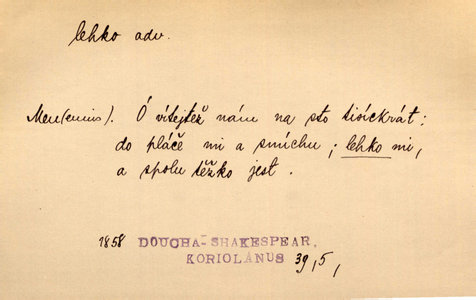 lehko adv.
Men(enius). Ó vítejtež nám na sto tisíckrát:
do pláče mi a smíchu; lehko mi,
a spolu těžko jest.
1858 DOUCHA-SHAKESPEAR,
KORIOLANUS 39,5,